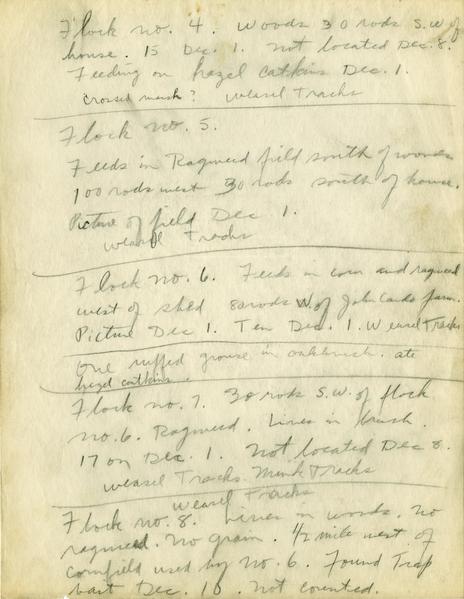 Flock no. 4. Woods 30 rods S.W. of
house. 15 Dec. 1. Not located Dec. 8.
Feeding on hazel catkins Dec. 1.
Crossed marsh? Weasel Tracks
Flock no. 5.
Feeds in Ragweed field south of woods
100 rods west 30 rods south of house.
Picture of field Dec 1.
Weasel Tracks
Flock no. 6. Feeds in corn and ragweed
west of shed 80 rods W. of John farm.
Picture Dec 1. Ten Dec. 1. Weasel Tracks
One ruffed grouse in oakbrush. ate
hazel catkins.
Flock no. 7. 30 rods S.W. of flock
no. 6. Ragweed. Lives in brush.
17 on Dec. 1. Not located Dec 8.
Weasel Tracks. Mink Tracks
Weasel Tracks
Flock no. 8. Lives in woods. No
ragweed. No grain. 1/2 mile west of
Cornfield used by No. 6. Found Trap
bait Dec. 10. Not counted.